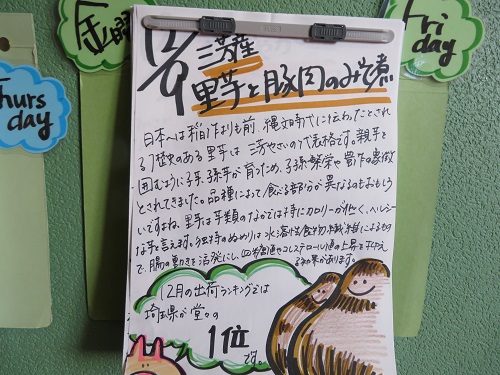 金曜
Fri
day
Thurs
day
三芳産
里芋と豚肉のみそ煮
日本へは稲作よりも前、縄文時代に伝わったとされ
る歴史のある里芋は三芳やさいの代表格です。親芋を
囲むように子芋、孫芋が育つため、子孫繁栄や豊作の象徴
とされてきました。品種によって食べる部分が異なるのもおもしろ
いですよね。里芋は芋類のなかでは特にカロリーが低く、ヘルシー
な芋と言えます。独特のぬめりは水溶性食物繊維によるもの
で、腸の動きを活発にし、血糖値やコレステロール値の上昇を抑え
る効果があります。
12月の出荷ランキングでは
埼玉県が堂々の
1位
です。